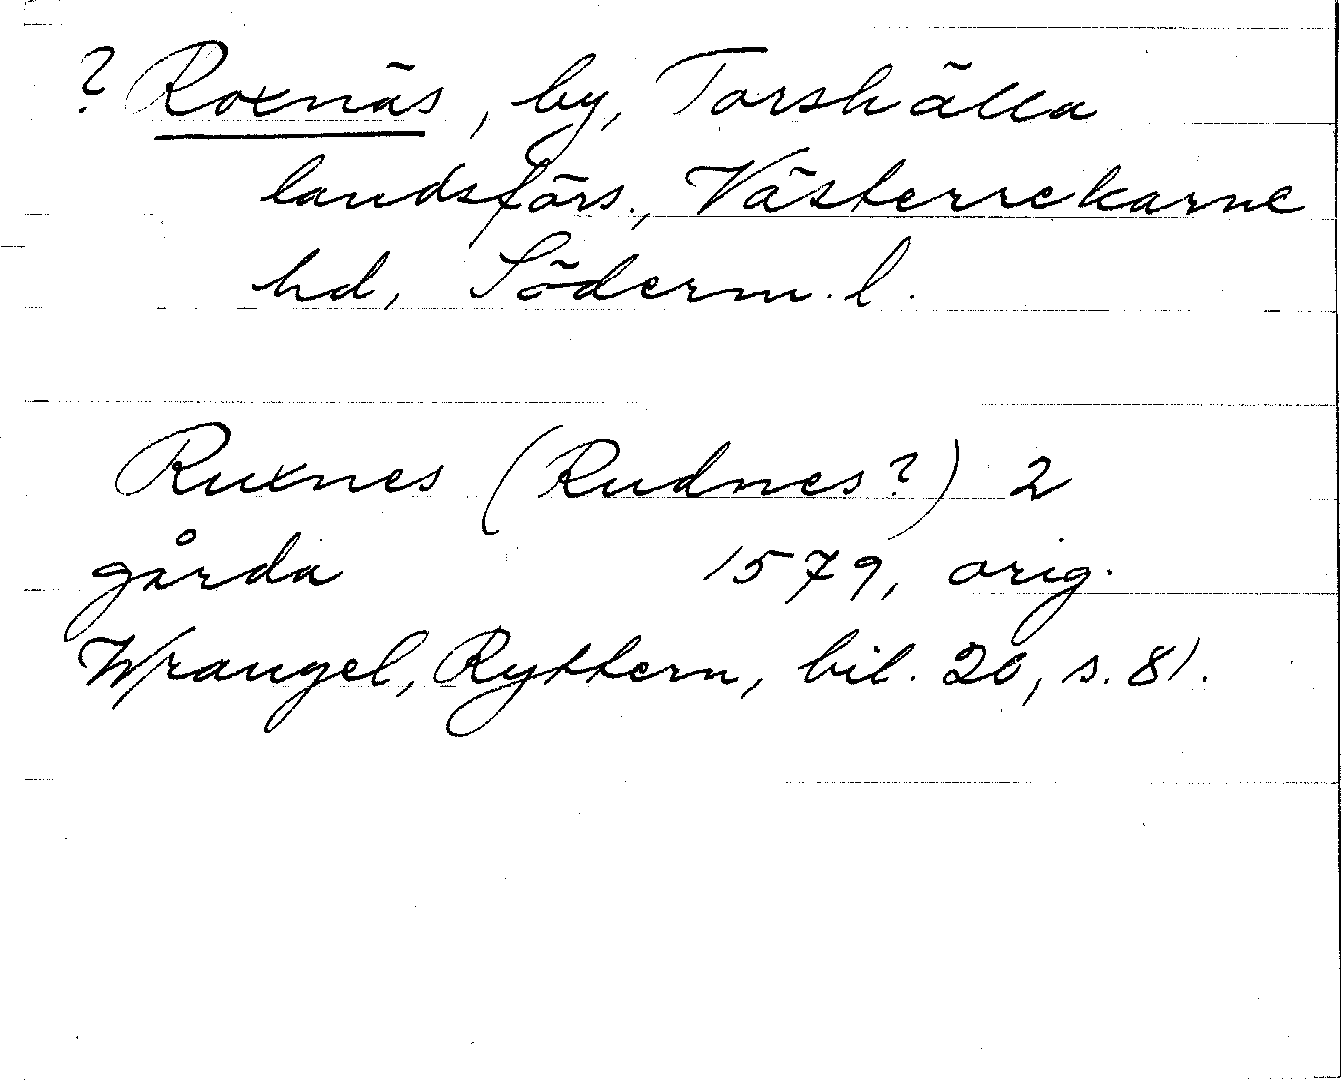 ? Roxnäs, by, Torshälla
landsförs., Västerrekarne
hd, Söderm. l.
Ruxnes (Rudnes?) 2
gårda 1579, orig.
Wrangel, Ryttern, bil. 20, s. 81.